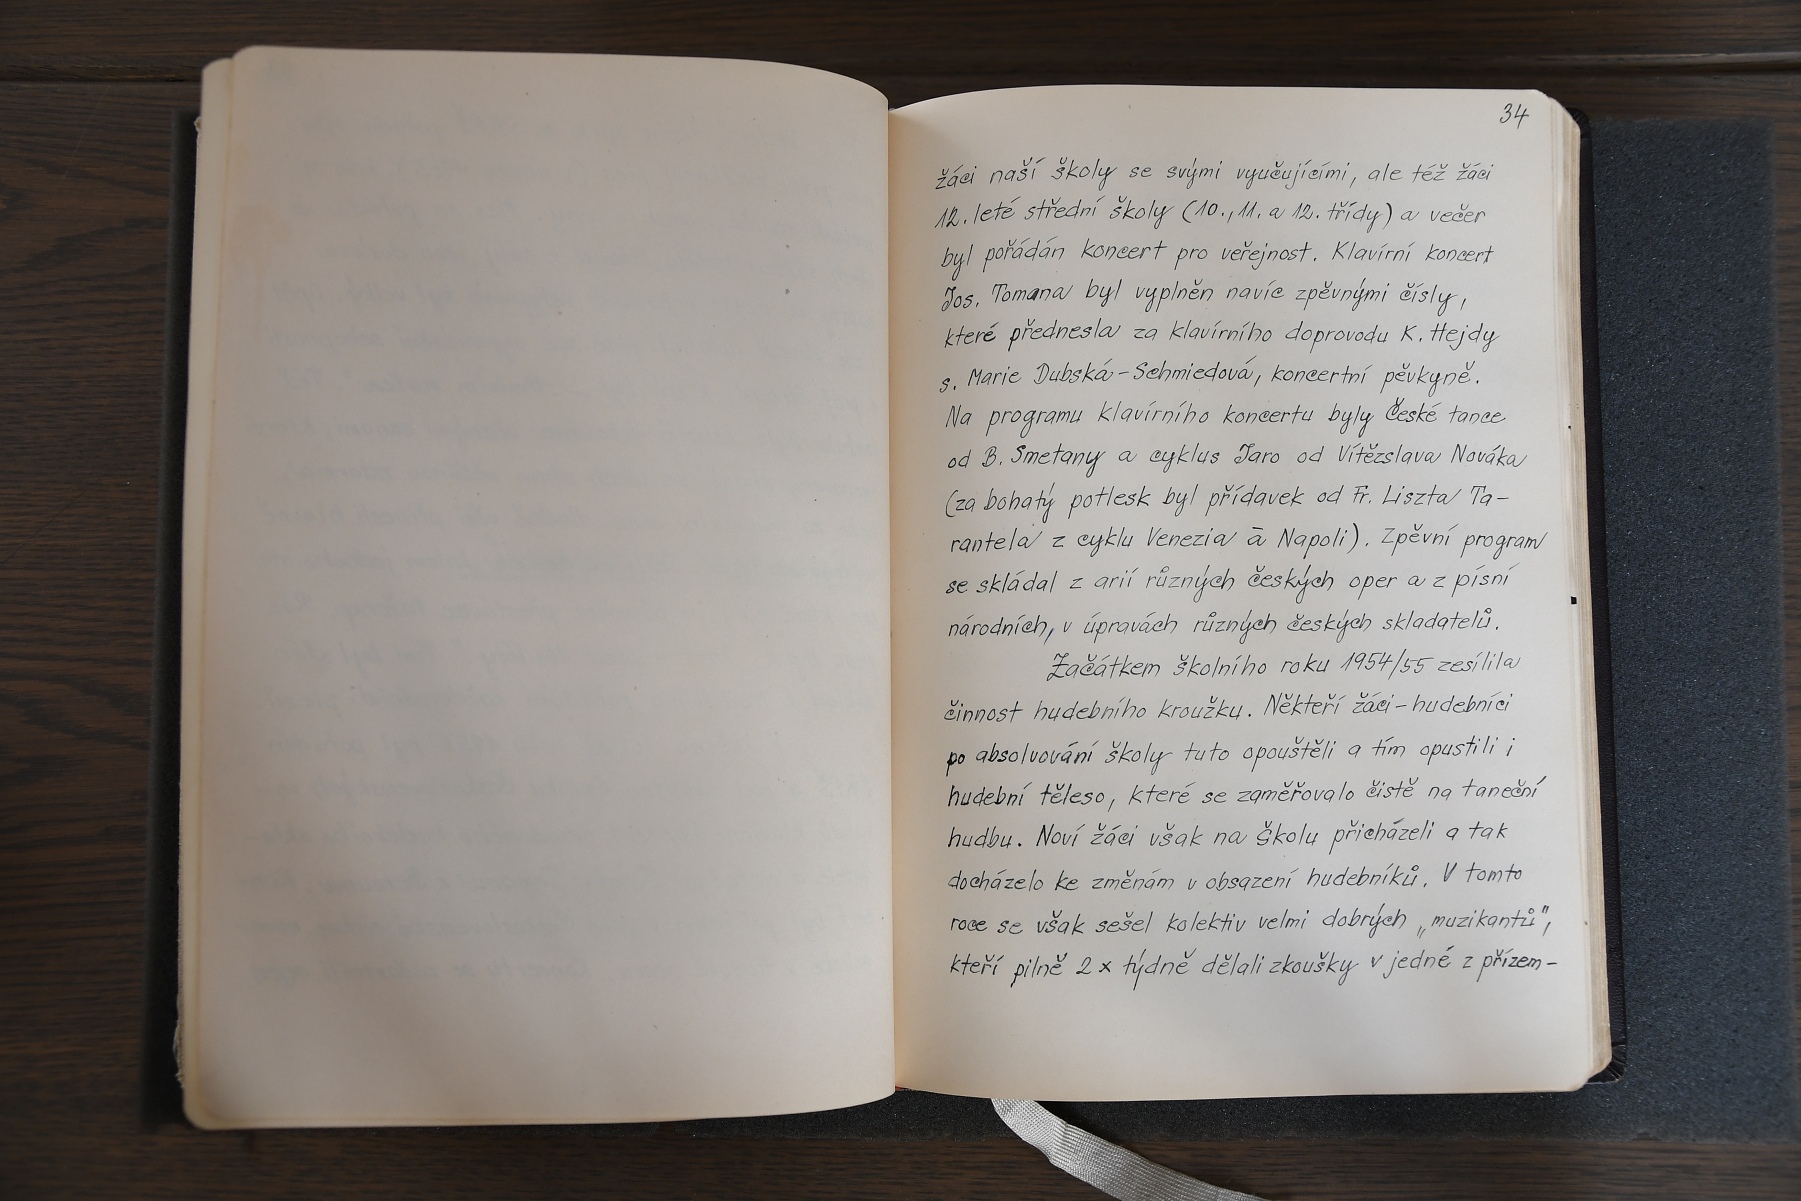 34
žáci naší školy se svými vyučujícími, ale též žáci
12. leté střední školy (10., 11. a 12. třídy) a večer
byl pořádán koncert pro veřejnost. Klavírní koncert
Jos. Tomana byl vyplněn navíc zpěvnými čísly,
které přednesla za klavírního doprovodu K. Hejdy
s. Marie Dubská-Schmiedová, koncertní pěvkyně.
Na programu klavírního koncertu byly České tance
od B. Smetany a cyklus Jaro od Vítězslava Nováka
(za bohatý potlesk byl přídavek od Fr. Liszta Ta-
rantela z cyklu Venezia ā Napoli). Zpěvní program
se skládal z arií různých českých oper a z písní
národních, v úpravách různých českých skladatelů.
Začátkem školního roku 1954/55 zesílila
činnost hudebního kroužku. Někteří žáci-hudebníci
po absolvování školy tuto opouštěli a tím opustili i
hudební těleso, které se zaměřovalo čistě na taneční
hudbu. Noví žáci však na školu přicházeli a tak
docházelo ke změnám v obsazení hudebníků. V tomto
roce se však sešel kolektiv velmi dobrých „muzikantů",
kteří pilně 2 x týdně dělali zkoušky v jedné z přízem-